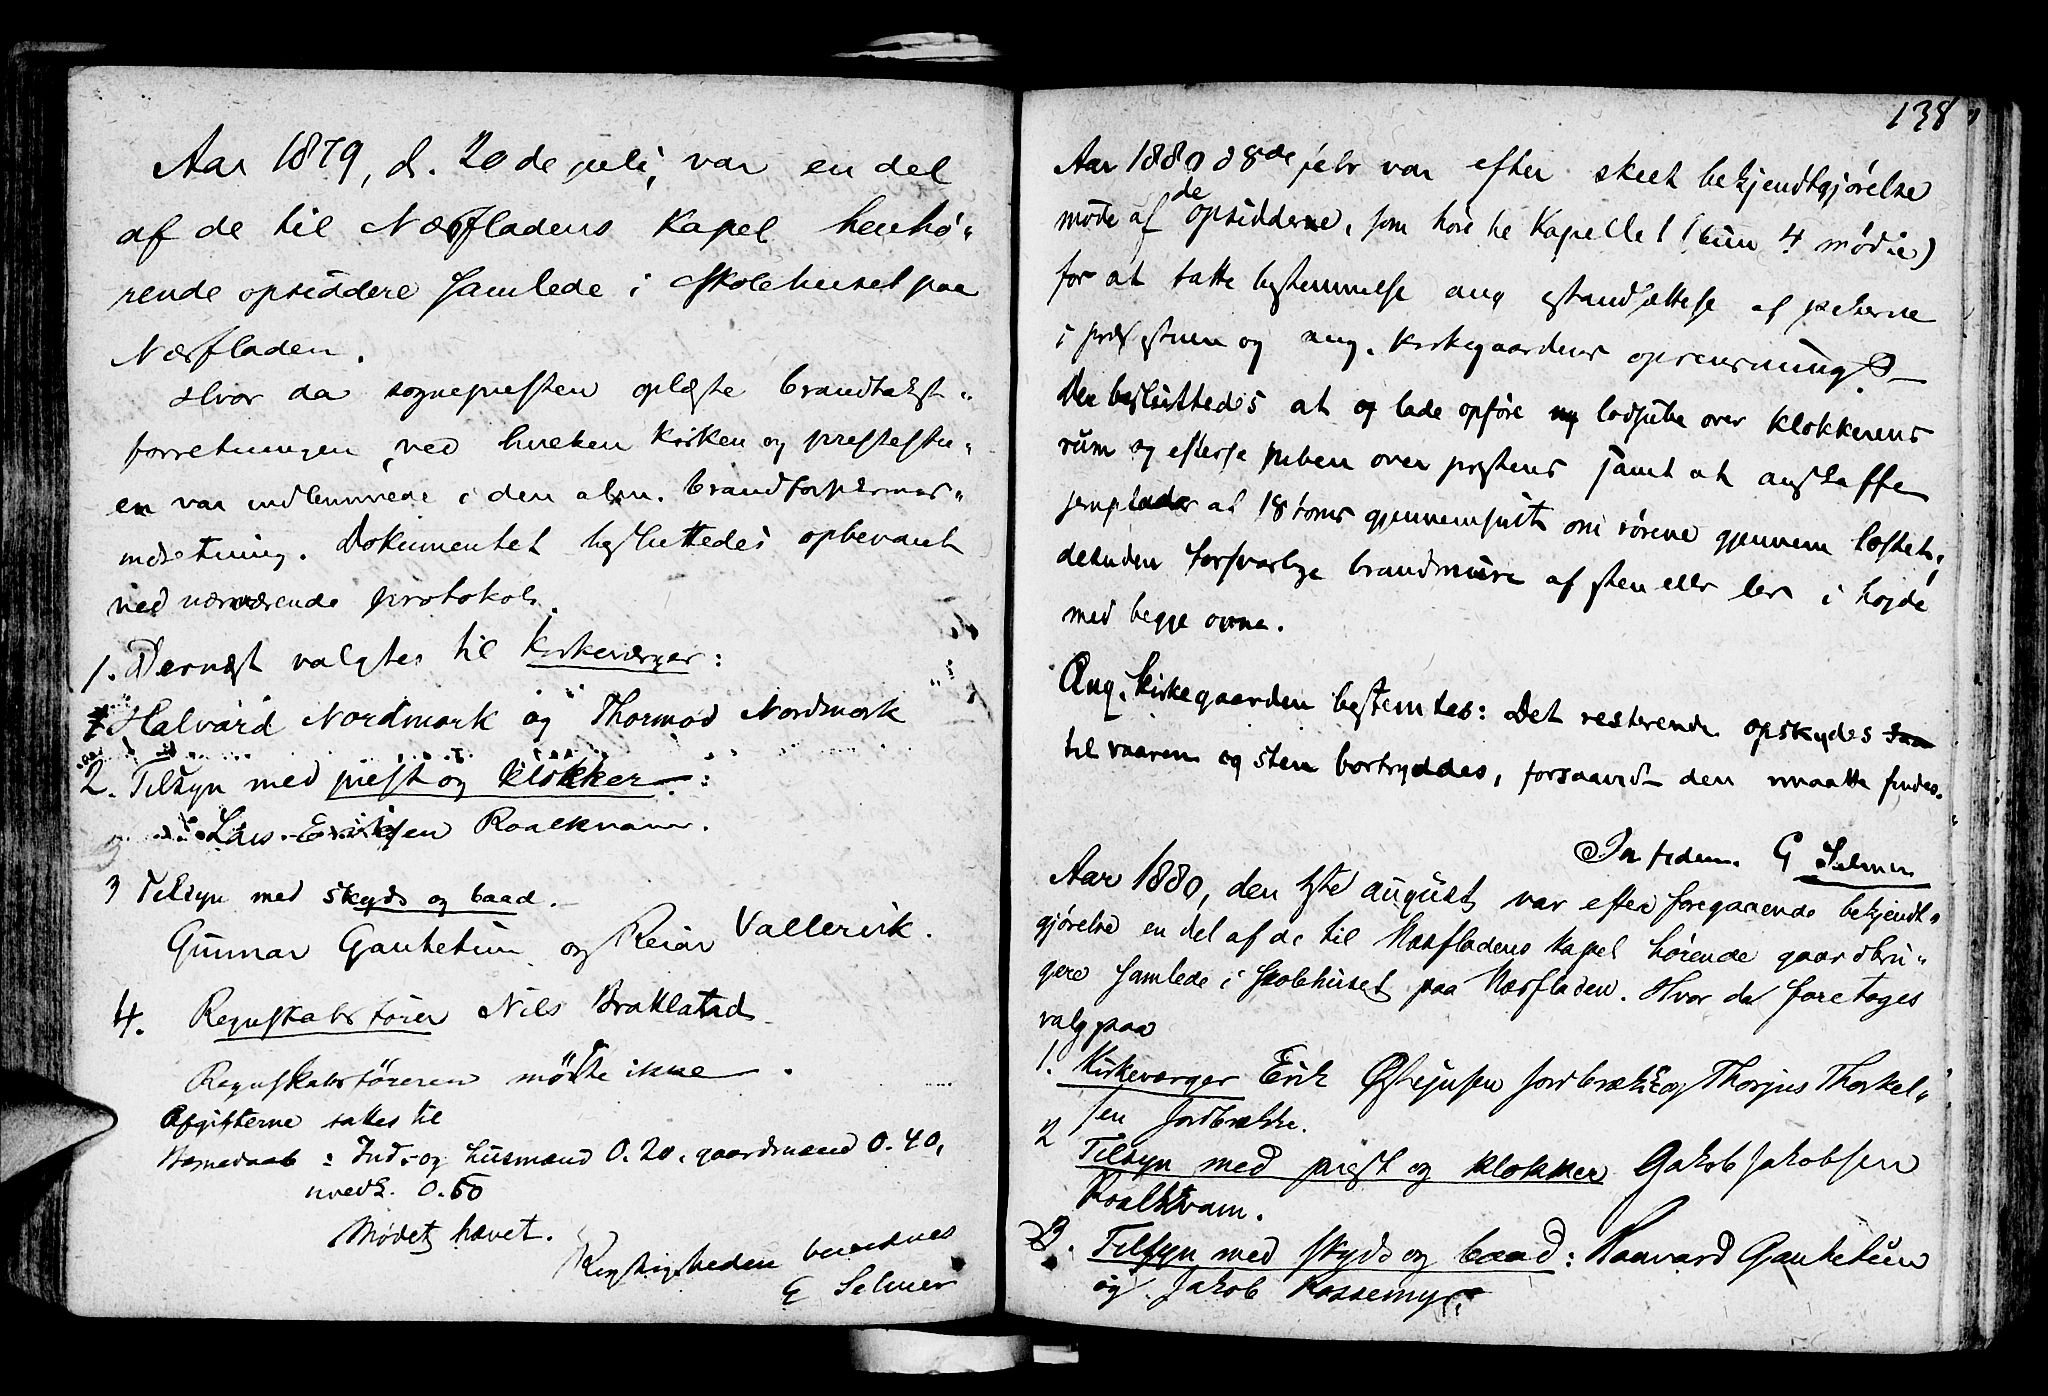 Aar 1879, d. 20de juli, var en del
af de til Næsfladens Kapel henhø-
rende opsiddere samlede i Skolehuset paa
Næsfladen.
Hvor da sognepresten oplæste brandtakst-
forretningen, ved hvilken kirken og prestestu-
en var indlemmede i den alm. brandforsikrings-
indretning. Dokumentet besluttedes opbevaret
ved nærværende protokol.
1. Dernæst valgtes til kirkeværger:
Halvard Nordmork og Thormod Nordmork
2. Tilsyn med prest og klokker:
Lars Eriksen Roalkvam.
3 Tilsyn med skyds og baad.
Gunnar Gautetun og Reiar Vallervik.
4. Regnskabsfører Nils Bratlatad
Regnskabsføreren mødte ikke.
Afgifterne sattes til
: Ind- og Husmænd 0.20, gaardmænd 0.40,
0.60
Mødet hævet.
Rigtigheden bevidnes
G Selmer
138
Aar 1880 d 8de febr var efter skeet bekjendtgjørelse
møde af de opsiddere, som høre te Kapellet (kun 4 mødte)
for at tatte bestemmelse ang istandsættelse af peiserne
i prestestuen og ang. kirkegaardens oprensning.
Der besluttedes at og lade opføre ny lodpibe over klokkerens
rum og efterse piben over prestens samt at anskaffe
jernplader af 18 toms gjennemsnit om rørene gjennem loftet,
desuden forsvarlige brandmure af sten eller ler i høide
med begge ovne.
Ang. kirkegaarden bestemtes: Det resterende opskydes
til vaaren og sten bortryddes, forsaavidt den maatte findes.
In fidem. G Selmer
Aar 1880, den 1ste august var efter foregaaende bekjendt-
gjørelse en del af de til Næsfladens kapel hørende gaardbru-
gere samlede i skolehuset paa Næsfladen. Hvor da foretoges
valg paa
1. Kirkeværger Erik Østejnsen Jordbrække og Thorjus Thorkel-
sen Jordbrække.
2 Tilsyn med prest og klokker Jakob Jakobsen
Roalkvam.
3. Tilsyn med skyds og baad: Haavard Gautetun
og Jakob Kossemyr.